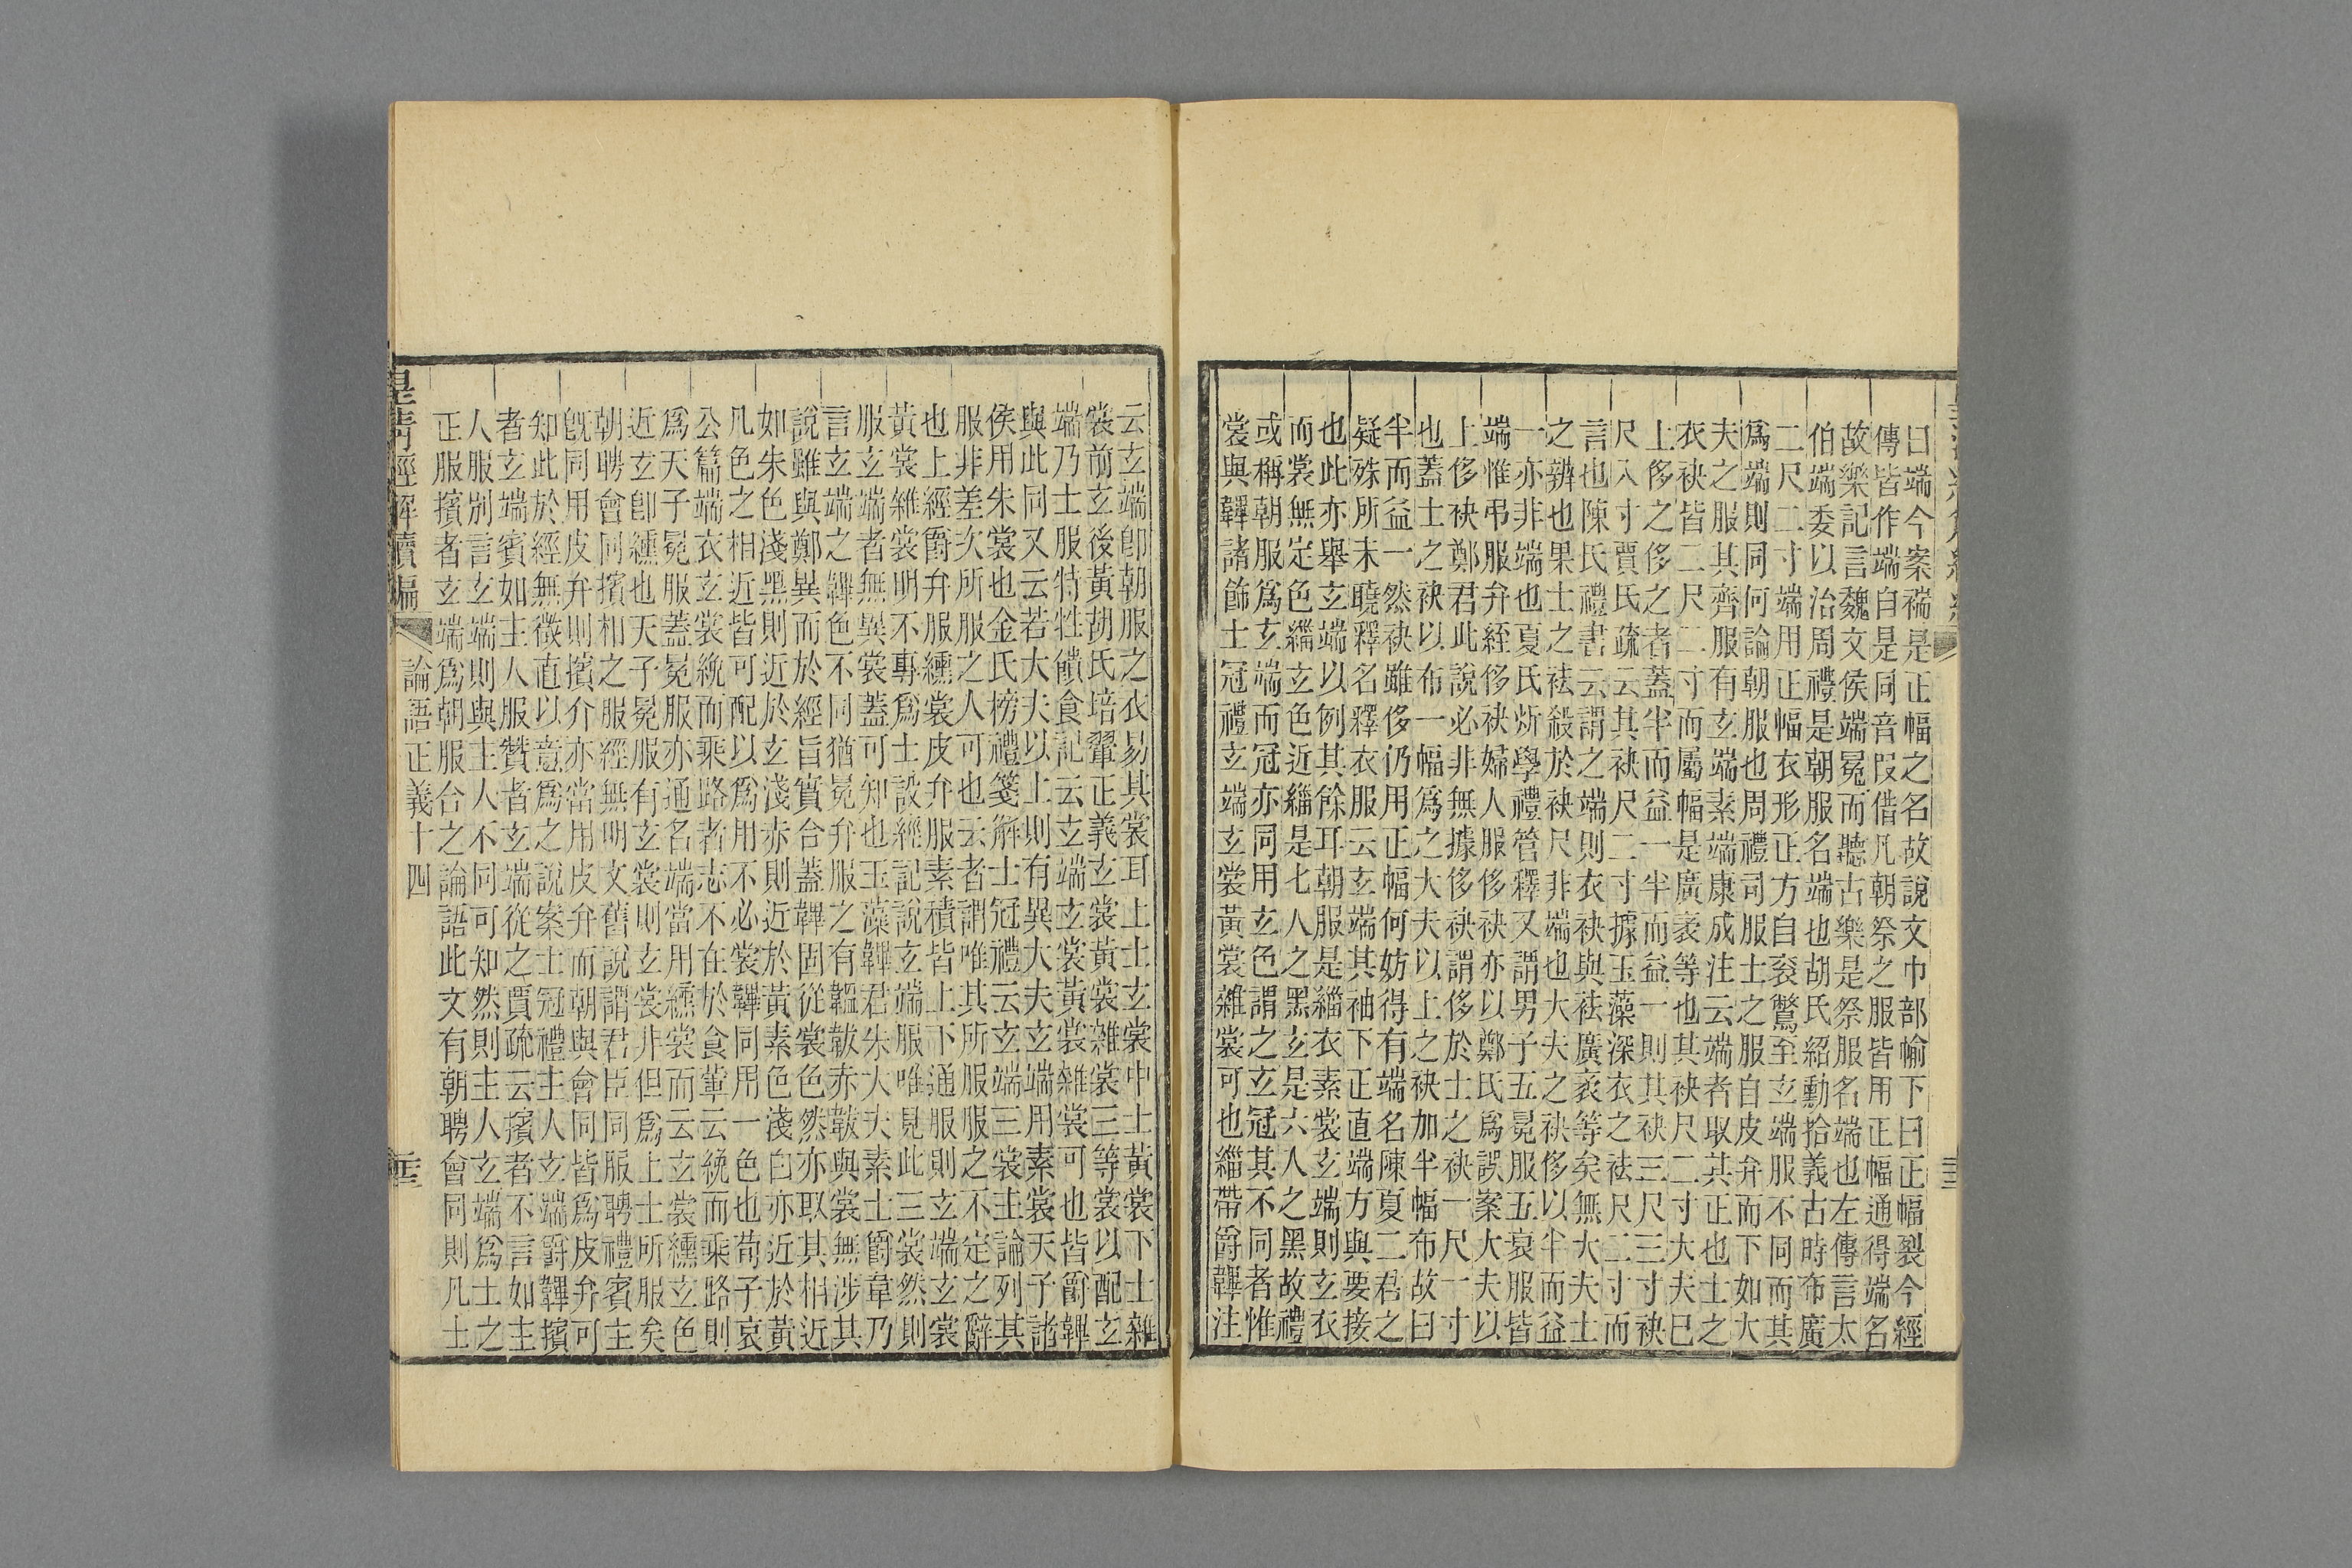 曰端今案褍是正幅之名故說文巾部褕下曰正幅裂今經
傳皆作端自是同音叚借凡朝祭之服皆用正幅通得端名
故樂記言魏文侯端冕而聽古樂是祭服名端也左傳言太
伯端委以治周禮是朝服名端也胡氏紹勳拾義古時布廣
二尺二寸端用正幅衣形正方自袞鷩至玄端服不同而其
爲端則同何論朝服也周禮司服士之服自皮弁而下如大
夫之服其齊服有玄端素端康成注云端者取其正也士之
衣袂皆二尺二寸而屬幅是廣袤等也其袂尺二寸大夫已
上侈之侈之者蓋半而益一半而益一則其袂三尺三寸袂
尺八寸賈氏疏云其袂尺二寸據玉藻深衣之袪尺二寸而
言也陳氏禮書云謂之端則衣袂與袪廣袤等矣無大夫士
之辨也果士之袪殺於袂尺非端也大夫之袂侈以半而益
一亦非端也夏氏炘學禮管釋又謂男子五冕服五哀服皆
端惟弔服弁絰侈袂婦人服侈袂亦以鄭氏爲誤案大夫以
上侈袂鄭君此說必非無據侈袂謂侈於士之袂一尺一寸
也蓋士之袂以布一幅爲之大夫以上之袂加半幅布故曰
半而益一然袂雖侈仍用正幅何妨得有端名陳夏二君之
疑殊所未曉釋名釋衣服云玄端其袖下正直端方與要接
也此亦舉玄端以例其餘耳朝服是緇衣素裳玄端則玄衣
而裳無定色緇玄色近緇是七人之黑玄是六人之黑故禮
或稱朝服爲玄端而冠亦同用玄色謂之玄冠其不同者惟
裳與韠諸飾士冠禮玄端玄裳黃裳雜裳可也緇帶爵韠注
云玄端卽朝服之衣易其裳耳上士玄裳中士黃裳下士雜
裳前玄後黃胡氏培翬正義玄裳黃裳雜裳三等裳以配玄
端乃士服特牲饋食記云玄端玄裳黃裳雜裳可也皆爵韠
與此同又云若大夫以上則有異大夫玄端用素裳天子諸
侯用朱裳也金氏榜禮箋解士冠禮云玄端三裳主論列其
服非差次所服之人可也云者謂唯其所服服之不定之辭
也上經爵弁服纁裳皮弁服素積皆上下通服則玄端玄裳
黃裳雜裳明不專爲士設經記說玄端服唯見此三裳然則
服玄端者無異裳蓋可知也玉藻韠君朱大夫素士爵韋乃
言玄端之韠色不同猶冕弁服之有韞韍赤韍與裳無涉其
說雖與鄭異而於經旨實合蓋韠固從裳色然亦取其相近
如朱色淺黑則近於玄淺赤則近於黃素色淺白亦近於黃
凡色之相近皆可配以爲用不必裳韠同用一色也荀子哀
公篇端衣玄裳絻而乘路者志不在於食葷云絻而乘路則
爲天子冕服蓋冕服亦通名端當用纁裳而云玄裳纁玄色
近玄卽纁也天子冕服有玄裳則玄裳非但爲上士所服矣
朝聘會同擯相之服經無明文舊說謂君臣同服聘禮賓主
旣同用皮弁則擯介亦當用皮弁而朝與會同皆爲皮弁可
知此於經無徵直以意爲之說案士冠禮主人玄端爵韠擯
者玄端賓如主人服贊者玄端從之賈疏云擯者不言如主
人服別言玄端則與主人不同可知然則主人玄端爲士之
正服擯者玄端爲朝服合之論語此文有朝聘會同則凡士
皇淸經解續編
論語正義十四